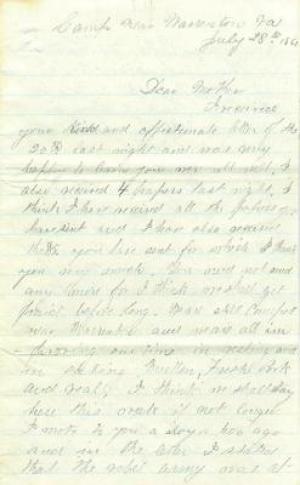 Camp near Warrenton Va
July 28th 186
Dear Mother
I received
your kind and affectionate letter of the
20th last night and was very
happy to know you were all well. I
also received 4 papers last night, I
think I have received all the papers
sent and I have also received
the you have sent for which I thank
you very much. You need not send
any more for I think we shall get
before long. We are still camped
near Warrenton and we are all im-
proving our time in resting and
in Mutton, Fresh Pork
and veal, I think we shall stay
here this week if not longer
I wrote to you a days ago
and in the letter I stated
that the rebel army was at